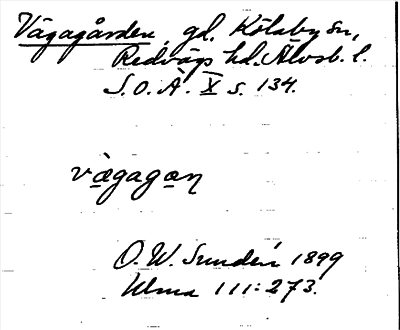 Vägagården, gd. Kölaby sn,
Redvägs hd. Älvsb. l.
S.O.Ä. X s. 134.
vægagæn
O. W. Sundén 1899
Ulma 111:273.